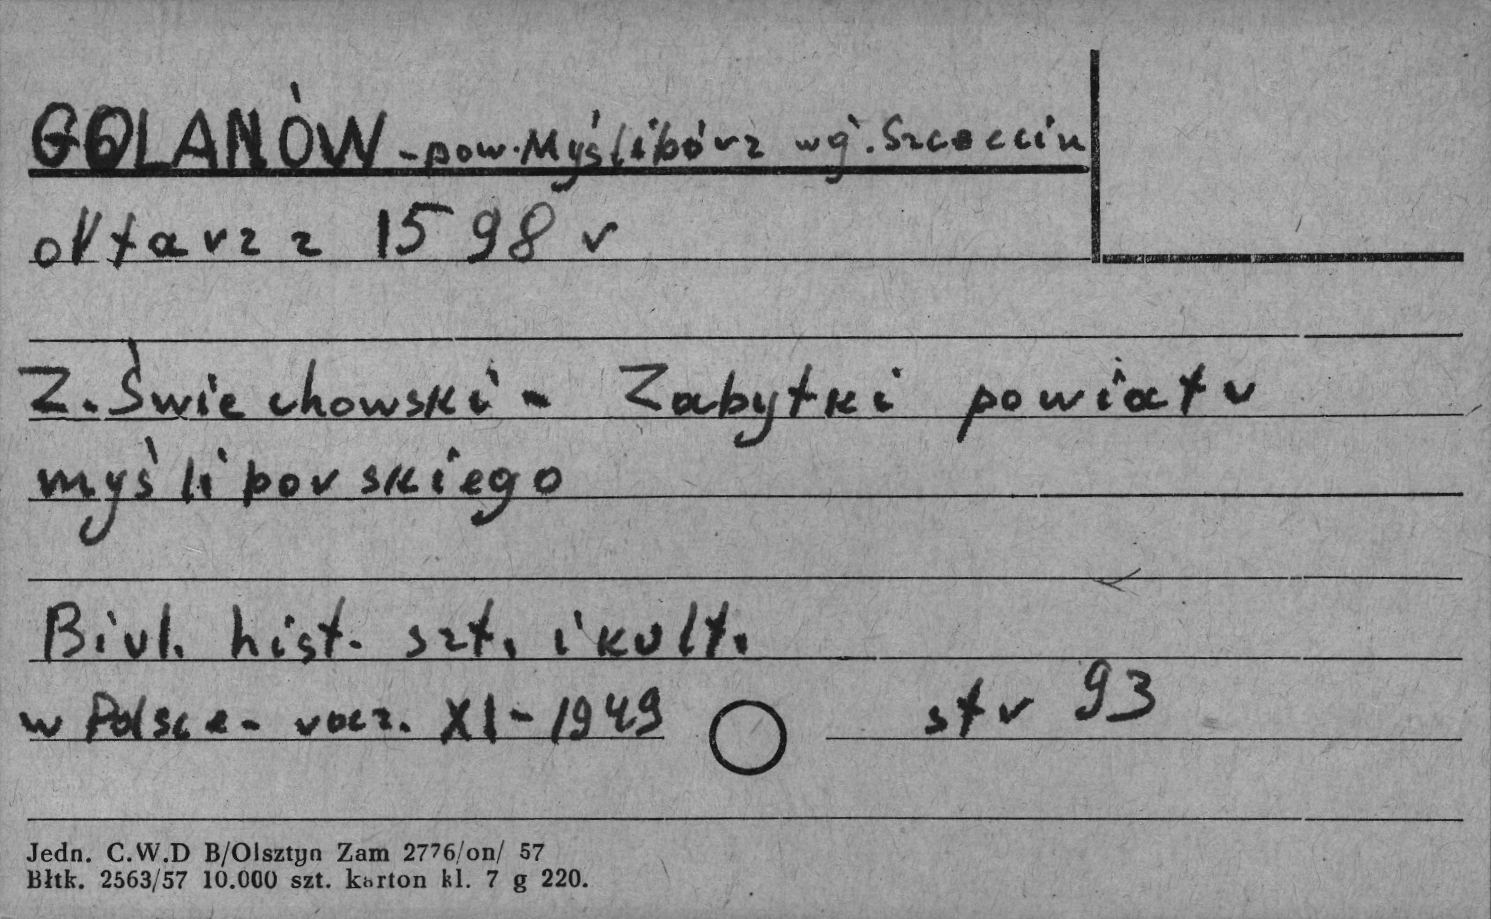 GOLANÓW - pow. Myślibórz wg. Szczecin
ołtarz z 1598 r
Z. Świechowski - Zabytki powiatu
myśliborskiego
Biul. hist. szt. i kult.
w Polsce - rocz. XI - 1949 str 93
Jedn. C.W.D B/Olsztyn Zam 2776/on/ 57
Błtk. 2563/57 10.000 szt. karton kl. 7 g 220.